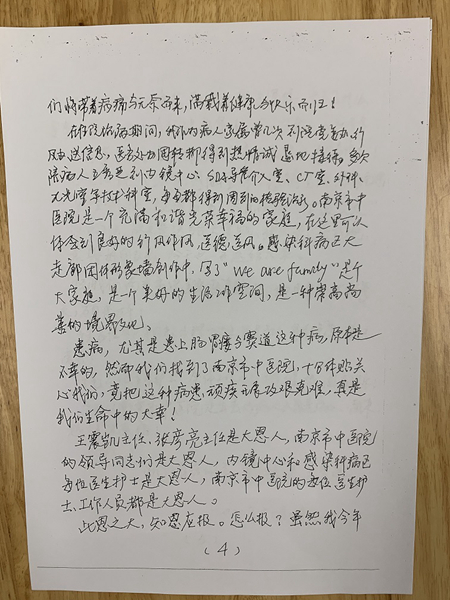 们怀带着病痛与无奈而来，满载着健康与快乐而归！
在住院治病期间，我作为病人家属曾几次到党委办、行
风办送信息，医教办回转都得到热情诚恳地接待。多次
陪病人王震到内镜中心、SDA导管介入室、CT室、外科、
无光室等技术科室，每每都得到周到的检验治疗。南京市中
医院是一个充满和谐光荣幸福的家庭，在这里可以
体会到良好的行风作风、医德医风。感染科病区大
走廊团体形象墙创作中，写了“we are family”是个
大家庭，是一个美好的生活工作空间，是一种崇高尚
善的境界文化。
患病，尤其是患上肠胃 这种病，原本是
不幸的，然而我们找到了南京市中医院，十分体贴关
心我们，竟把这种病患顽疾 攻艰克难，真是
我们生命中的大幸！
王震凯主任、张彦亮主任是大恩人，南京市中医院
的领导同志们是大恩人，内镜中心和感染科病区
每位医生护士是大恩人，南京市中医院的每位医生护
士、工作人员都是大恩人。
此恩之大，知恩应报。怎么报？虽然我今年
（4）